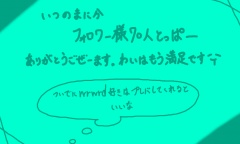 いつのまに今
フォロワー様70人とっぱー
ありがとうごぜーます。わいはもう満足です
ついでに prprprd 好きは プレにしてくれると
いいな